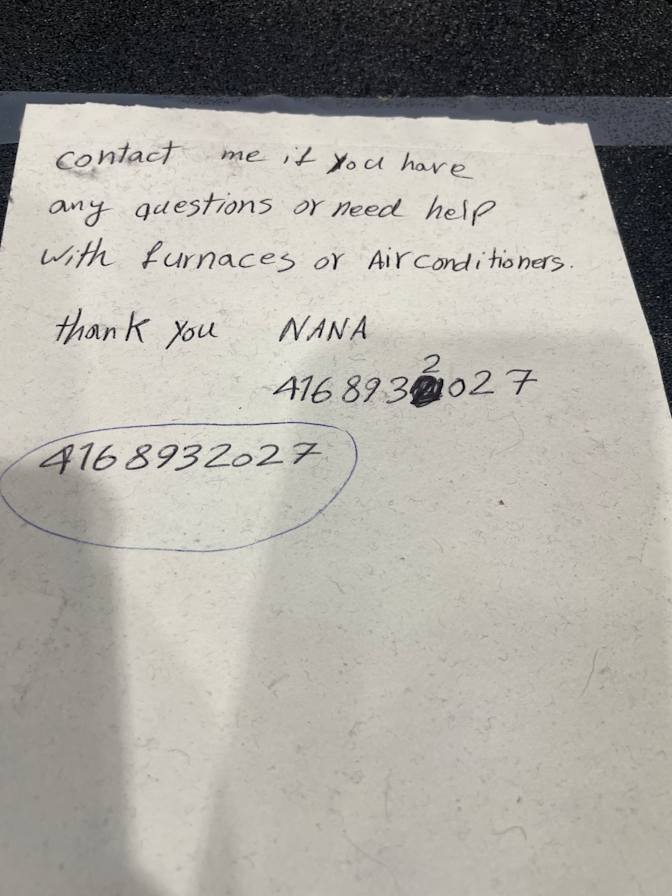 contact me if you have
any questions or need help
with furnaces or Air conditioners.
thank you NANA
2
416 893 027
4168932027